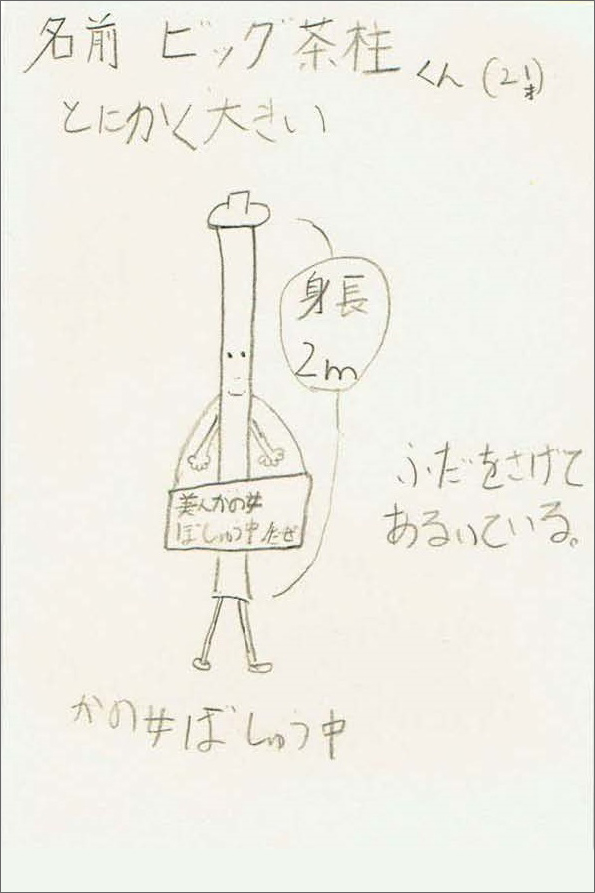 名前 ビッグ茶柱くん(21才)
とにかく大きい
身長
2m
ふだをさげて
あるいている。
美人かの女
ぼしゅう中だぜ
かの女ぼしゅう中